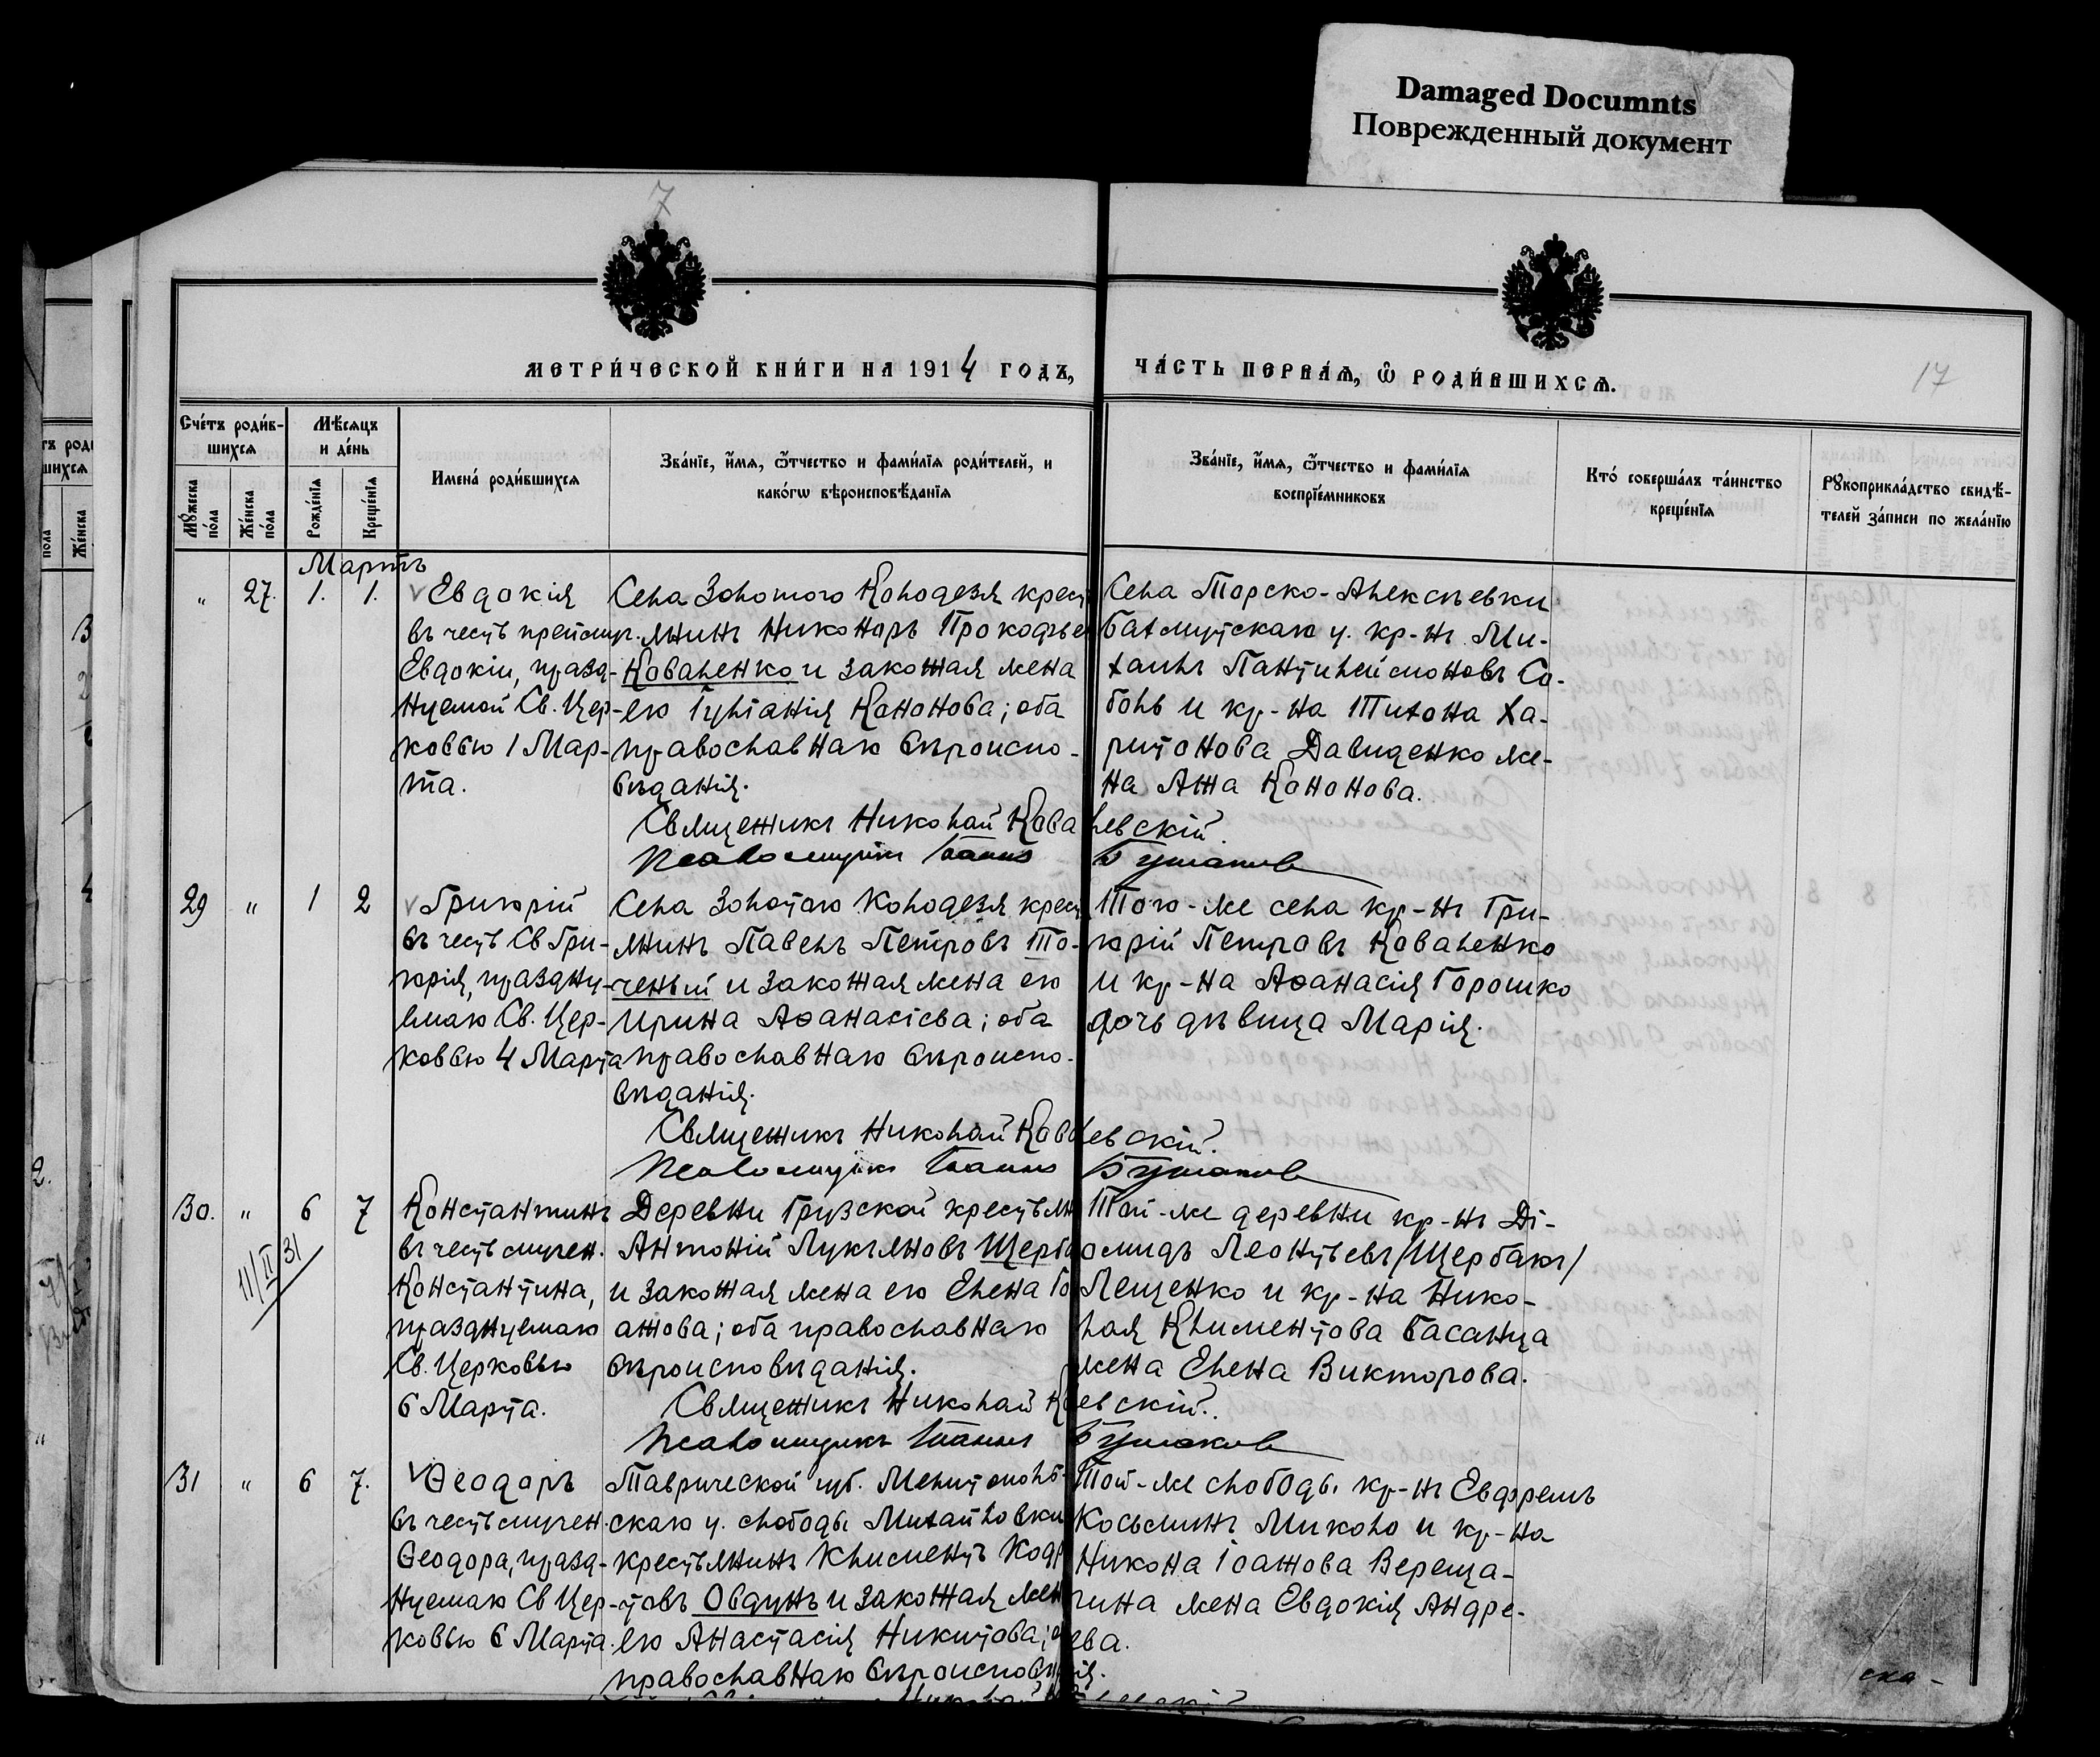 Damaged Documnts
Поврежденный документ
7
МЕТРИ́ЧЕСКОЙ КНИ́ГИ НА 1914 ГОДЪ,
ЧА́СТЬ ПЕРВАѦ, Ѽ РОДИ́ВШИХСѦ.
17
Сче́тъ роди́в-
шихсѧ
Мѣ́сѧцъ
и де́нь
Мꙋ́жеска
по́ла
Же́нска
по́ла
Рожде́нїѧ
Креще́нїѧ
Имена̀ роди́вшихсѧ
Зва́нїе, и́мѧ, ѻ҆́тчество и фами́лїѧ роди́телей, и
како́гѡ вѣроисповѣ́данїѧ
Зва́нїе, и́мѧ, ѻ҆́тчество и фами́лїѧ
воспрїе́мниковъ
Кто̀ соверша́лъ та́инство
креще́нїѧ
Рꙋкоприкла́дство свидѣ́-
телей за́писи по жела́нїю
Мартъ
„ 27. 1. 1.
Евдокія
въ честь препмуч.
Евдокіи, празд-
нуемой Св. Цер-
ковью 1 Мар-
та.
Села Золотого Колодезя крест
янинъ Никоноръ Прокофьев
Коваленко и законная жена
его Іуліанія Кононова; оба
православнаго вѣроиспо-
вѣданія.
Села Торско-Алексѣевки
Бахмутскаго у. кр-нъ Ми-
хаилъ Пантилеймоновъ Со-
боль и кр-на Тихона Ха-
ритонова Давиденко же-
на Анна Кононова.
Священникъ Николай Ковалевскій.
Псаломщикъ Іоаннъ Бушаковъ
29 „ 1 2
Григорій
въ честь Св Гри-
горія, праздну-
емаго Св. Цер-
ковью 4 Марта
Села Золотого Колодезя крест
янинъ Павелъ Петровъ То-
ченый и законная жена его
Ирина Аѳанасіева; оба
православнаго вѣроиспо-
вѣданія.
Того-же села кр-нъ Гри-
горій Петровъ Коваленко
и кр-на Аѳанасія Горошко
дочь дѣвица Марія.
Священникъ Николай Ковалевскій.
Псаломщикъ Іоаннъ Бушаковъ
30. „ 6 7
11/II 31
Константинъ
въ честь мучен.
Константина,
празднуемаго
Св. Церковью
6 Марта.
Деревни Грузской крестьян
Антоній Лукьяновъ Щерба
и законная жена его Елена Іо
аннова; оба православнаго
вѣроисповѣданія.
Той-же деревни кр-нъ Ді-
омидъ Леонтьевъ /Щербакъ/
Лещенко и кр-на Нико-
лая Климентова Басанца
жена Елена Викторова.
Священникъ Николай К евскій.
Псаломщикъ Іоаннъ Бушаковъ
31 „ 6 7.
Ѳеодоръ
въ честь мучен.
Ѳеодора, празд-
нуемаго Св Цер-
ковью 6 Марта.
Таврической губ. Мелитополь-
скаго у. слободы Михайловки
крестьянинъ Климентъ Кодр
товъ Овдунъ и законная жен
его Анастасія Никитова; о
православнаго вѣроисповѣд ія.
Той-же слободы кр-нъ Евфремъ
Косьминъ Миколо и кр-на
Никона Іоаннова Вереща-
гина жена Евдокія Андре-
ева.
ска-